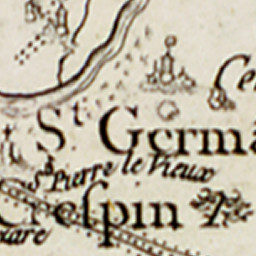 St Germa
St Pierre le Vieux
Crespin